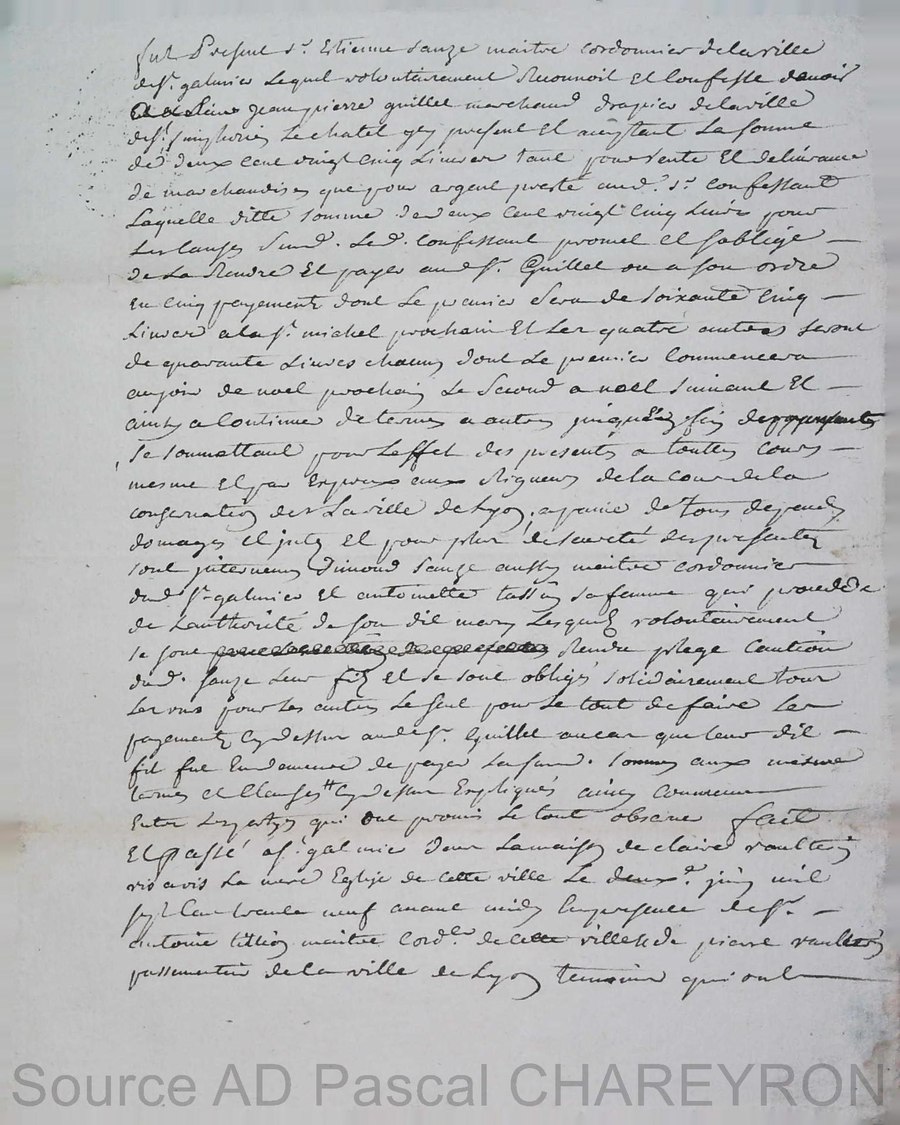 fut Present sr. Estienne sauze maitre cordonnier de la ville
de st. galmier Lequel volontairement Reconnoit Et Confesse devoir
Jean pierre guillet marchand drapier de la ville
de st. Le chatel ycy present Et aceptant La somme
de deux cent vingt cinq Livres tant pour vente Et delivrance
de marchandises que pour argent presté aud. sr. Confessant
Laquelle ditte somme de deux cent vingt cinq Livres pour
Les causes Susd. Led. Confessant promet et soblige
de La Rendre Et payer aud sr. Guillet ou a son ordre
En cinq payements dont Le premier sera de soixante Cinq
Livres a la st. michel prochain Et Les quatre autres seront
de quarante Livres chacun dont Le premier Commencera
au jour de noel prochain Le Second a noel suivant Et
ainsy a Continuer de termes a autres jusques En fin de
Se soumettant pour Leffet des presentes a touttes cours
mesme Et par Exprex aux Rigueurs de la cour de la
conservation de La ville de Lyon, a paine de tous depends
domages et et pour plus de seureté des presentes
sont intervenus Simond Sauze aussy maitre cordonnier
dud st. galmier Et antoinette tassin sa femme qui procedde
de Lauthorité de son dit mary Lesquels volontairement
se sont Rendu plege Caution
dud. Sauze Leur fils et se sont obligés solidairement Lun
pour Les autres Le seul pour Le tout de faire Les
payements Cy dessus aud sr. Guillet au cas que leur dit
fils fut En demeure de payer Lasusd. somme aux mesme
termes et Clauses Cy dessus Expliqués ainsy Convenu
Entre Les partyes qui ont promis Le tout observer fait
Et Passé a st. galmier dans La maison de claire vaultrin
vis a vis La Eglise de Cette ville Le deux. juin mil
sept Cent trente neuf avant midy En presence de sr.
antoine tillion maitre Cordr. de Cette ville & de pierre
passementier de la ville de Lyon temoins qui ont
Source AD Pascal CHAREYRON